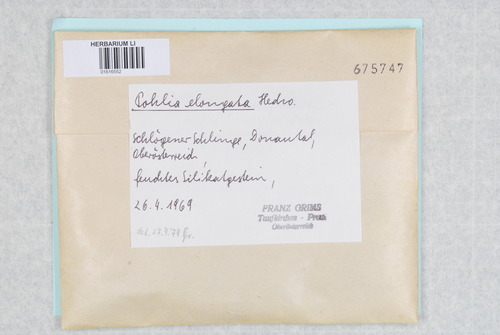 HERBARIUM LI
675747
Pohlia elongata Hedw.
Schlögener Schlinge, Donautal,
Oberösterreich,
feuchtes Silikatgestein,
26.4.1969
FRANZ GRIMS
Taufkirchen - Pram
Oberösterreich